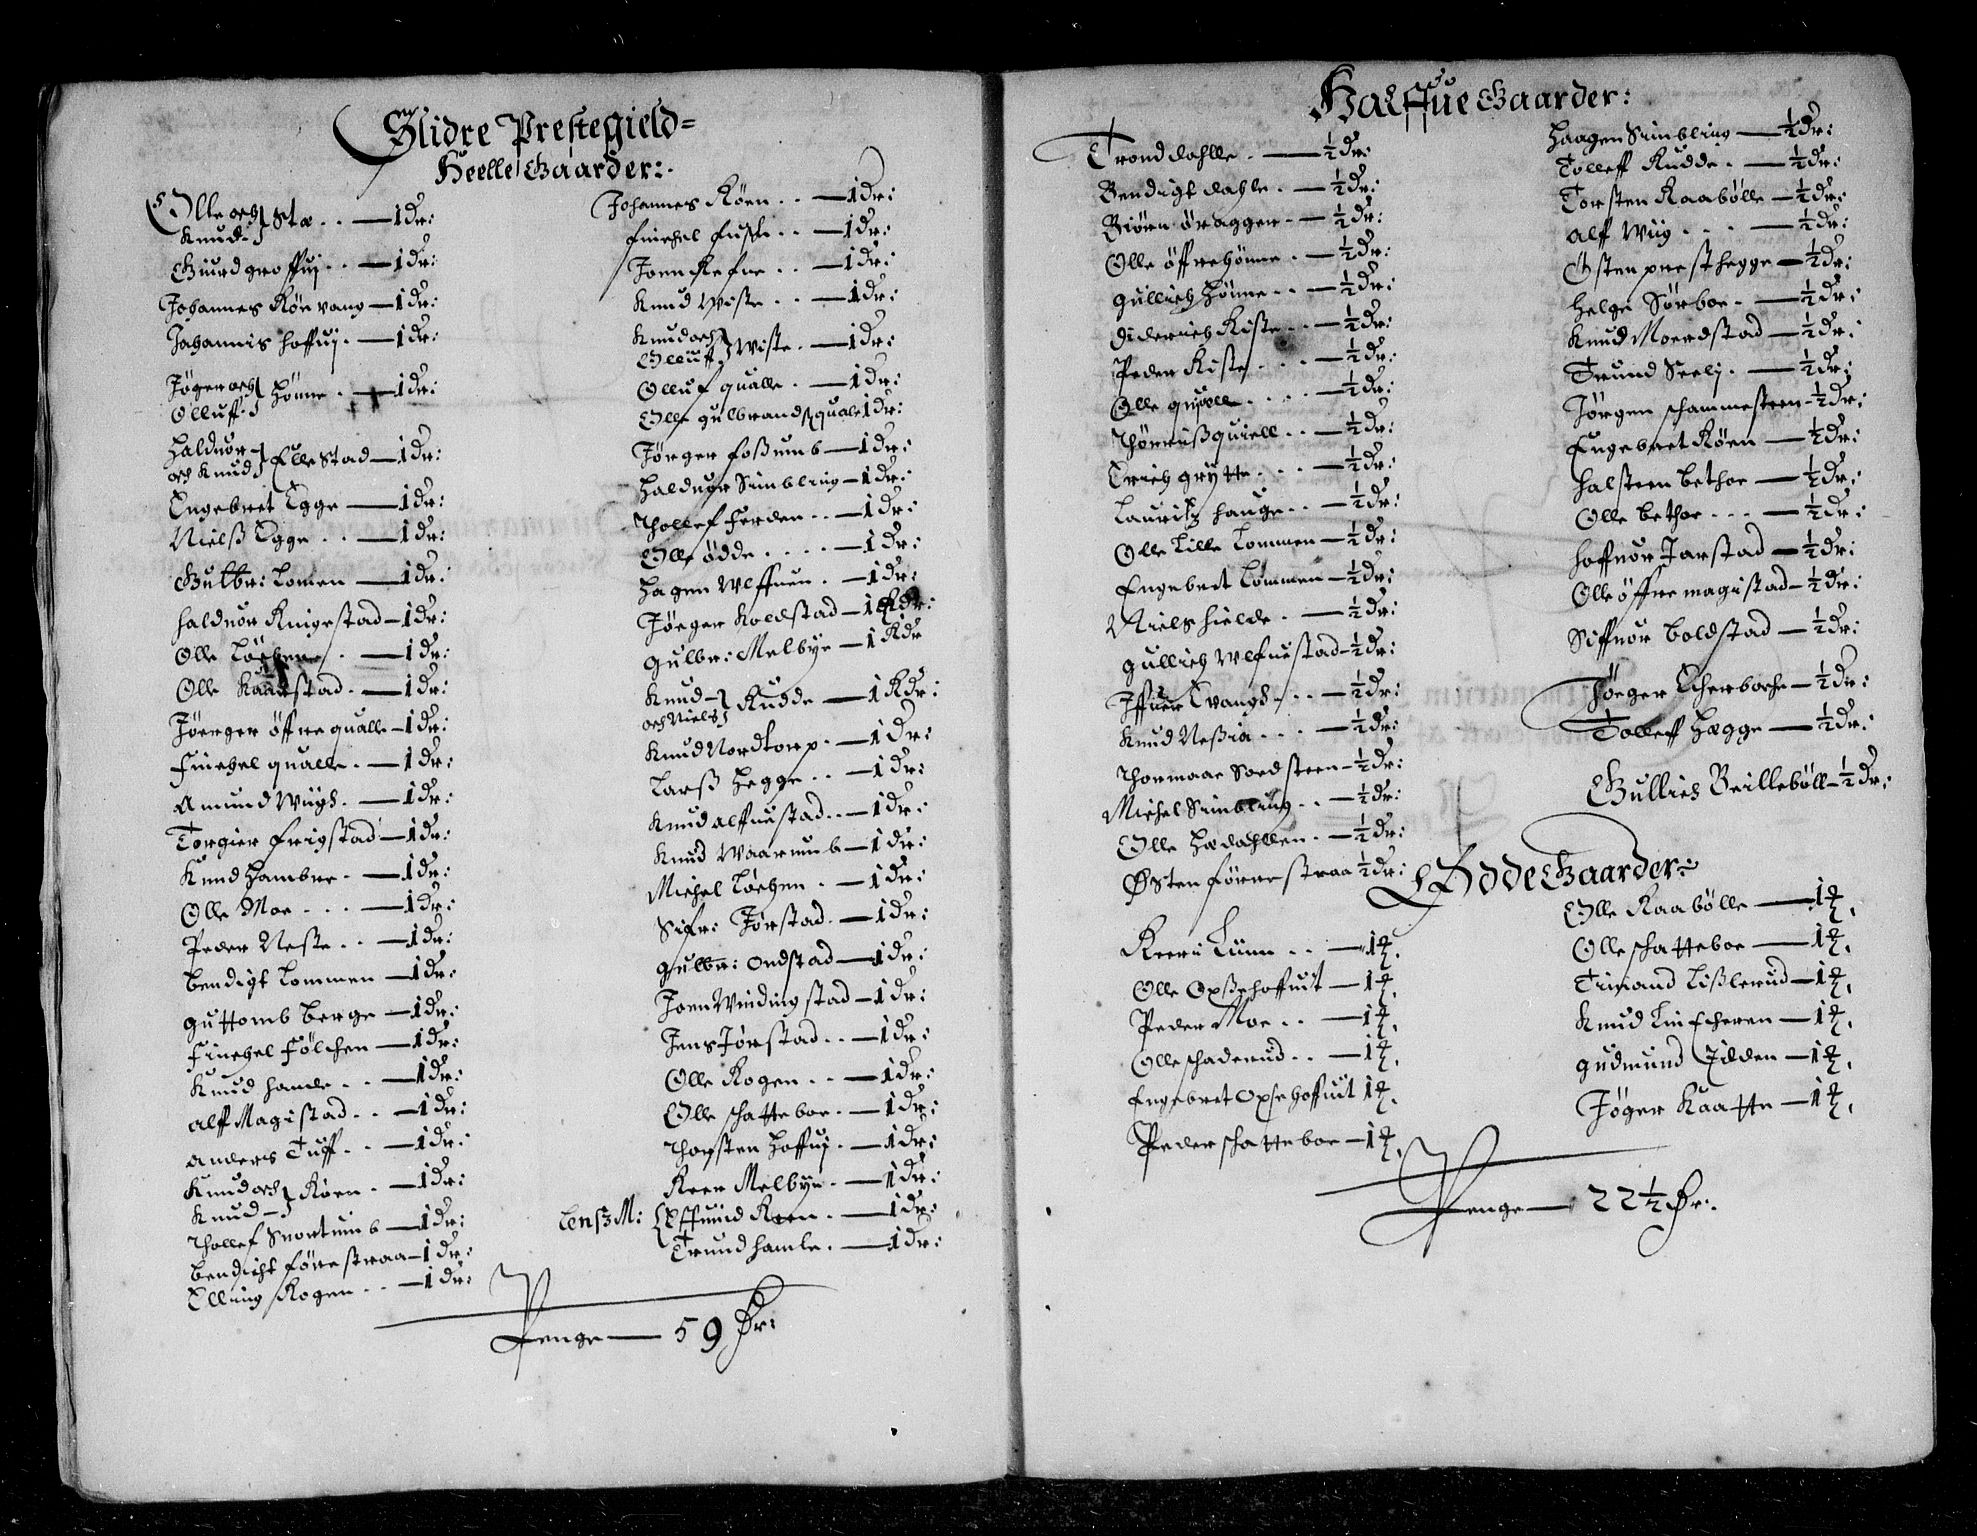 Slidre Prestegield
Heelle Gaarder:
Olle och
Knud } Stæ . . — 1 dr:
Giurd groffuj . . — 1 dr:
Johannes Röe vang — 1 dr:
Johannis hoffuj . — 1 dr:
Jöger och
Olluff } Hönne . — 1 dr:
Halduor
och Knud } Ellestad — 1 dr:
Engebret Egge — 1 dr:
Nielß Egge . . — 1 dr:
Gulbr: Lomen — 1 dr:
Halduor Ringestad — 1 dr:
Olle Löchen . — 1 dr:
Olle Kaarstad . — 1 dr:
Jöerger öffre qualle — 1 dr:
Finchel qualle . — 1 dr:
Amund Wiigh . — 1 dr:
Torgier Frigstad — 1 dr:
Knud Hambre . — 1 dr:
Olle Moe . . . — 1 dr:
Peder Neste . . — 1 dr:
Bendigt Lommen — 1 dr:
Guttomb Berge — 1 dr:
Finchel Fölchen — 1 dr:
Knud Hamle . . — 1 dr:
Alff Magistad . . — 1 dr:
Anders Tuff . . — 1 dr:
Knud och
Knud } Röen . — 1 dr:
Thollef Snortumb — 1 dr:
Bendicht förrestraa — 1 dr:
Elling Rogen . . — 1 dr:
Johannes Röen . . — 1 dr:
Finchel Fusk . . — 1 dr:
Joen Refne . . — 1 dr:
Knud Wiste . . — 1 dr:
Knud och
Olluf } Wiste . — 1 dr:
Olluf qualle . — 1 dr:
Olle gulbrandsß quale 1 dr:
Jörger foßumb — 1 dr:
Halduor Simbling — 1 dr:
Thollef Ferden . . — 1 dr:
Olle ödde . . . . — 1 dr:
Hagen Ulffuen . — 1 dr:
Jörger Koldstad — 1 Rdr:
Gulbr: Melbye — 1 Rdr
Knud
och Niels } Rudde — 1 Rdr:
Knud Nordtorp . — 1 dr:
Larß Hegge . . — 1 dr:
Knud Alffuestad . . — 1 dr:
Knud Waarumb — 1 dr:
Michel Löchen . — 1 dr:
Sifr: Jorstad . — 1 dr:
Gulbr: Ondstad — 1 dr:
Joen Windingstad — 1 dr:
Jens Jörstad . . — 1 dr:
Olle Rogen . . — 1 dr:
Olle schatteboe . — 1 dr:
Thorsten Hoffuj . — 1 dr:
Reer Melbye . — 1 dr:
LenßM: { Effuind Reen . — 1 dr:
Trund Hamle . — 1 dr:
Penge — 59 dr:
Halffue Gaarder:
Trond dahlle . — ½ dr:
Bendigt dahle . — ½ dr:
Biörn öragger . — ½ dr:
Olle öffrehönne . — ½ dr:
Gullich Hönne . . — ½ dr:
Diderich Riste . . — ½ dr:
Peder Riste . . . — ½ dr:
Olle quælle . . . . — ½ dr:
Thörrisß quiell . . — ½ dr:
Erich grytte . . . — ½ dr:
Lauritz Hauge . . — ½ dr:
Olle Lille Lommen — ½ dr:
Engebret Lommen — ½ dr:
Niels Hielde . — ½ dr:
Gullich Ulfuestad — ½ dr:
Iffuer Evangs . . — ½ dr:
Knud Neßia . . . — ½ dr:
Thormaar Sordsteen — ½ dr:
Michel Simbling . . — ½ dr:
Olle Hædahllen . — ½ dr:
Østen förrestraa ½ dr:
Haagen Simbling — ½ dr:
Tolleff Rudde . — ½ dr:
Torsten Raabölle — ½ dr:
Alff Wiig . . . — ½ dr:
Østen presthegge — ½ dr:
Helge Sörboe . — ½ dr:
Knud Moerdstad — ½ dr:
Trund Seelj . — ½ dr:
Jörgen schammesteen — ½ dr:
Engebret Röen — ½ dr:
Halsteen Bethoe — ½ dr:
Olle Bethoe . . . — ½ dr:
Hoffuor Jarstad — ½ dr:
Olle öffre magistad — ½ dr:
Siffuor Boldstad — ½ dr:
Jöeger Echerboche — ½ dr:
Tolleff Hægge — ½ dr:
Gullich Beillebölle — ½ dr:
Ødde Gaarder:
Reer i Liinn . . — 1 ₰.
Olle Oxßehoffuit — 1 ₰.
Peder Moe . . — 1 ₰.
Olle schaderud . . — 1 ₰.
Engebret Oxsehoffuit 1 ₰.
Peder schatteboe — 1 ₰.
Olle Raabölle — 1 ₰.
Olle schatteboe — 1 ₰.
Timand Lißlerud — 1 ₰.
Knud Linscheren — 1 ₰.
Gudmund Jilden — 1 ₰.
Jöger Kaatte — 1 ₰.
Penge — 22 ½ dr: